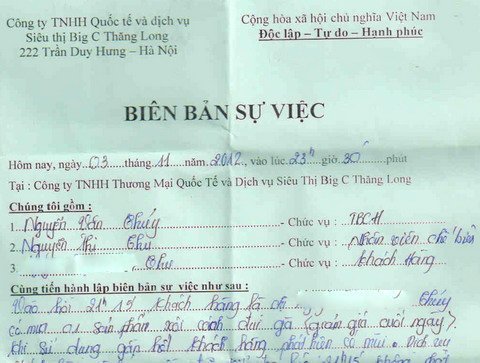 Công ty TNHH Quốc tế và dịch vụ
Siêu thị Big C Thăng Long
222 Trần Duy Hưng – Hà Nội
Cộng hòa xã hội chủ nghĩa Việt Nam
Độc lập – Tự do – Hạnh phúc
BIÊN BẢN SỰ VIỆC
Hôm nay, ngày 03 tháng 11 năm 2012, vào lúc 23h giờ 30 phút
Tại : Công ty TNHH Thương Mại Quốc Tế và Dịch vụ Siêu Thị Big C Thăng Long
Chúng tôi gồm :
1. Nguyễn Văn Thúy - Chức vụ : TBCH
2. Nguyễn Thị Thu - Chức vụ : Nhân viên chế biến
3. Thu - Chức vụ : Khách Hàng
Cùng tiến hành lập biên bản sự việc như sau :
Vào hồi 21h15 khách hàng là Thúy
có mua sản phẩm xôi giá (giảm giá cuối ngày).
Khi sử dụng gần hết khách hàng phát hiện có mùi